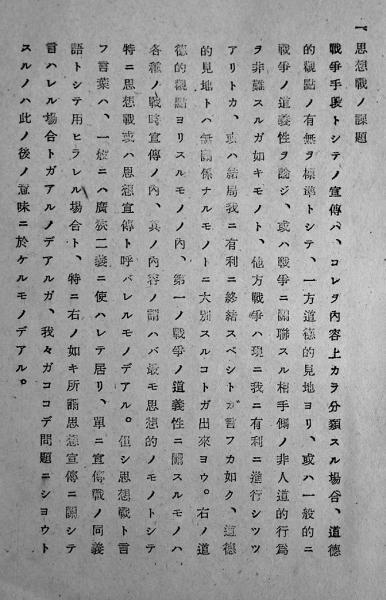 一 思想戦ノ課題
戦争手段トシテノ宣伝ハ、コレヲ内容上カラ分類スル場合、道徳
的観點ノ有無ヲ標準トシテ、一方道徳的見地ヨリ、或ハ一般的ニ
戦争ノ道義性ヲ論ジ、或ハ戦争ニ關聯スル相手側ノ非人道的行爲
ヲ非難スルガ如キモノト、他方戦争ハ現ニ我ニ有利ニ進行シツツ
アリトカ、或ハ結局我ニ有利ニ終結スベシトカ言フカ如ク、道徳
的見地トハ無關係ナルモノトニ大別スルコトガ出來ヨウ。右ノ道
徳的觀點ヨリスルモノノ內、第一ノ戦争ノ道義性ニ關スルモノハ
各種ノ戦時宣傳ノ內、其ノ內容ノ謂ハバ最モ思想的ノモノトシテ
特ニ思想戦或ハ思想宣傳ト呼バレルモノデアル。但シ思想戦ト言
フ言葉ハ、一般ニハ廣狹二義ニ使ハレテ居リ、單ニ宣傳戦ノ同義
語トシテ用ヒラレル場合ト、特ニ右ノ如キ所謂思想宣傳ニ關シテ
言ハレル場合トガアルノデアルガ、我々ガココデ問題ニシヨウト
スルノハ此ノ後ノ意味ニ於ケルモノデアル。